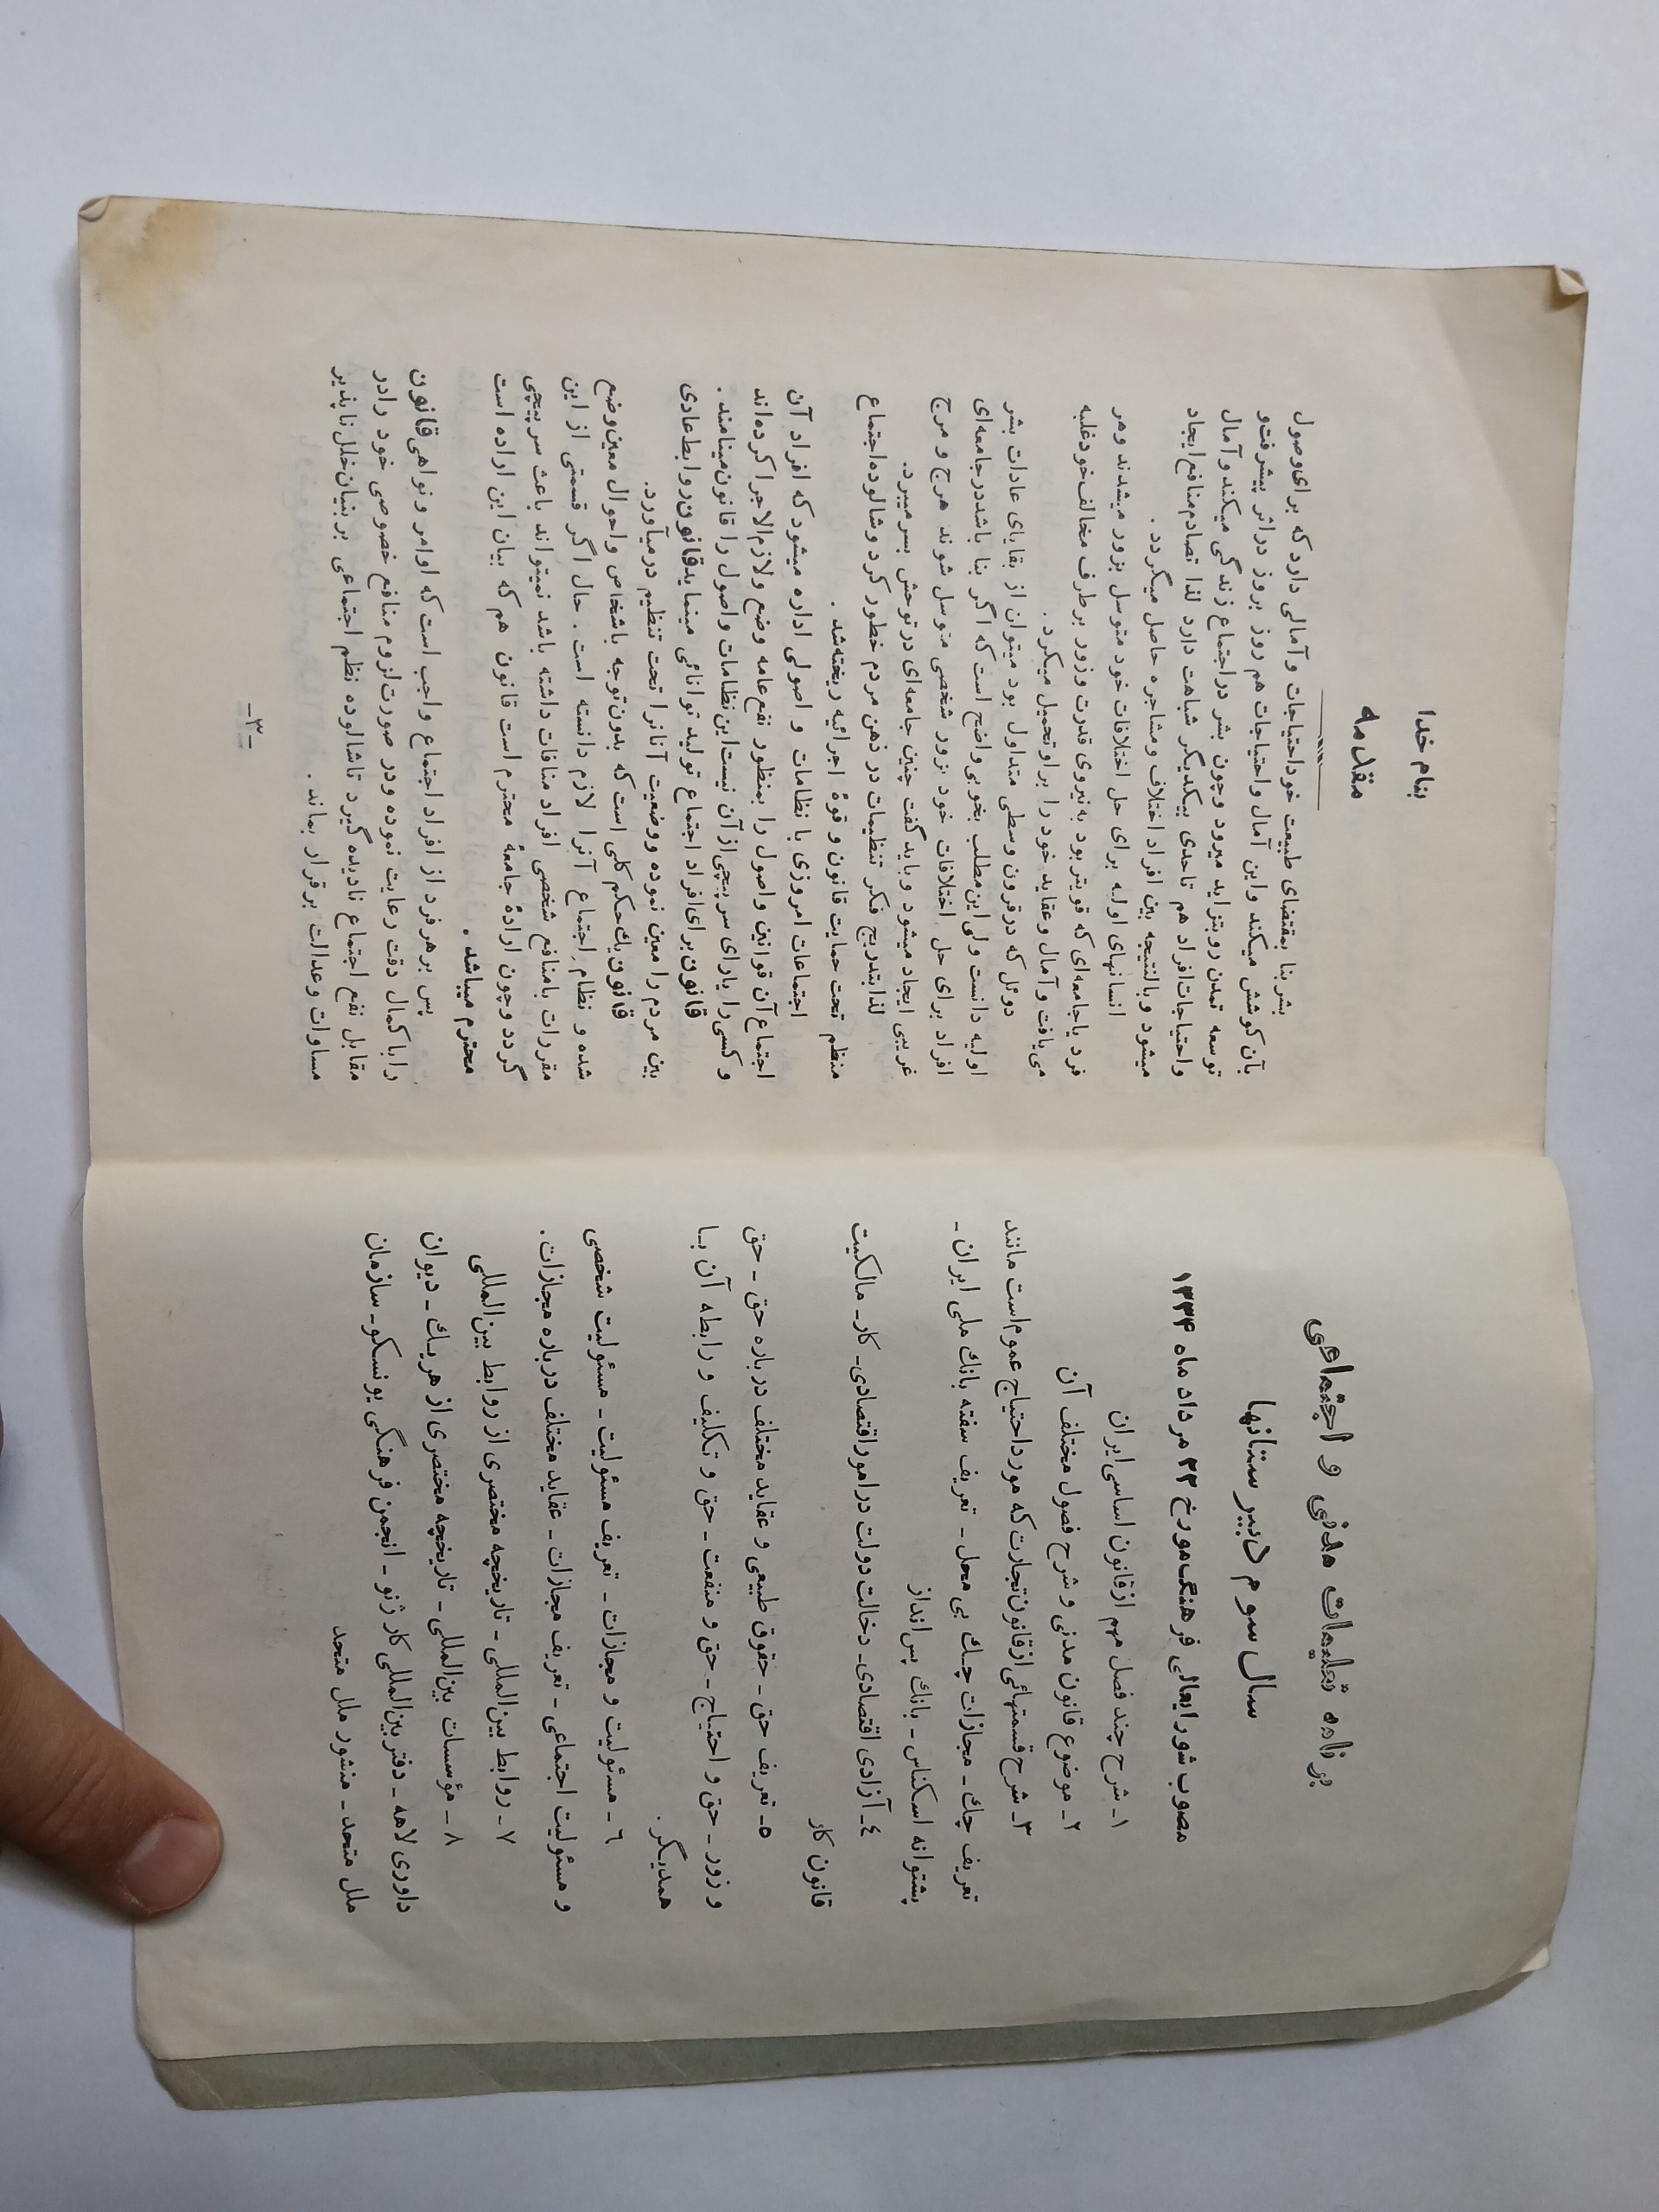 برنامه تعلیمات مدنی و اجتماعی
سال سوم دبیرستانها
مصوب شورایعالی فرهنگ مورخ ۲۳ مرداد ماه ۱۳۳۴
۱ـ شرح چند فصل مهم از قانون اساسی ایران
۲ـ موضوع قانون مدنی و شرح فصول مختلف آن
۳ـ شرح قسمتهائی از قانون تجارت که مورد احتیاج عموم است مانند
تعریف چك ـ مجازات چك بی محل ـ تعریف سفته بانك ملی ایران ـ
پشتوانه اسکناس ـ بانك پس‌انداز
٤ـ آزادی اقتصادی ـ دخالت دولت در امور اقتصادی ـ کار ـ مالکیت
قانون کار
٥ـ تعریف حق ـ حقوق طبیعی و عقاید مختلف درباره حق ـ حق
و زور ـ حق و احتیاج ـ حق و منفعت ـ حق و تکلیف و رابطه آن بـا
همدیگر .
٦ـ مسئولیت و مجازات ـ تعریف مسئولیت ـ مسئولیت شخصی
و مسئولیت اجتماعی ـ تعریف مجازات ـ عقاید مختلف درباره مجازات.
۷ـ روابط بین‌المللی ـ تاریخچه مختصری از روابط بین‌المللی
۸ـ مؤسسات بین‌المللی ـ تاریخچه مختصری از هریك ـ دیوان
داوری لاهه ـ دفتر بین‌المللی کار ژنو ـ انجمن فرهنگی یونسکو ـ سازمان
ملل متحد ـ منشور ملل متحد
بنام خدا
مقدمه
بشر بنا بمقتضای طبیعت خود احتیاجات و آمالی دارد که برای وصول
بآن کوشش میکند و این آمال و احتیاجات هم روز بروز در اثر پیشرفت و
توسعه تمدن رو بتزاید میرود و چون بشر در اجتماع زندگی میکند و آمال
و احتیاجات افراد هم تاحدی بیکدیگر شباهت دارد لذا تصادم منافع ایجاد
میشود و بالنتیجه بین افراد اختلاف و مشاجره حاصل میگردد .
انسانهای اولیه برای حل اختلافات خود متوسل بزور میشدند و هر
فرد یا جامعه‌ای که قویتر بود به نیروی قدرت و زور بر طرف مخالف خود غلبه
می یافت و آمال و عقاید خود را بر او تحمیل میکرد .
دوئل که در قرون وسطی متداول بود میتوان از بقایای عادات بشر
اولیه دانست ولی این مطلب بخوبی واضح است که اگر بنا باشد در جامعه‌ای
افراد برای حل اختلافات خود بزور شخصی متوسل شوند هرج و مرج
غریبی ایجاد میشود و باید گفت چنین جامعه‌ای در توحش بسر میبرد.
لذا بتدریج فکر تنظیمات در ذهن مردم خطور کرد و شالوده اجتماع
منظم تحت حمایت قانون و قوۀ اجرائیه ریخته شد .
اجتماعات امروزی با نظامات و اصولی اداره میشود که افراد آن
اجتماع آن قوانین و اصول را بمنظور نفع عامه وضع و لازم‌الاجرا کرده‌اند
و کسی را یارای سرپیچی از آن نیست این نظامات و اصول را قانون مینامند .
قانون برای افراد اجتماع تولید توانائی مینماید قانون روابط عادی
بین مردم را معین نموده و وضعیت آنانرا تحت تنظیم درمیآورد.
قانون یك حکم کلی است که بدون توجه باشخاص و احوال معین وضع
شده و نظام اجتماع آنرا لازم دانسته است . حال اگر قسمتی از این
مقررات بامنافع شخصی افراد منافات داشته باشد نمیتواند باعث سرپیچی
گردد و چون ارادۀ جامعۀ محترم است قانون هم که بیان این اراده است
محترم میباشد .
پس بر هر فرد از افراد اجتماع واجب است که اوامر و نواهی قانون
را با کمال دقت رعایت نموده و در صورت لزوم منافع خصوصی خود را در
مقابل نفع اجتماع نادیده گیرد تا شالوده نظم اجتماعی بر بنیان خلل ناپذیر
مساوات و عدالت برقرار بماند .
ـ۳ـ